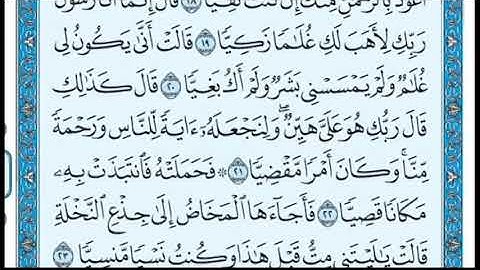 أَعُوذُ بِٱلرَّحْمَـٰنِ مِنكَ إِن كُنتَ تَقِيًّا ١٨ قَالَ إِنَّمَآ أَنَا۠ رَسُولُ
رَبِّكِ لِأَهَبَ لَكِ غُلَـٰمًا زَكِيًّا ١٩ قَالَتْ أَنَّىٰ يَكُونُ لِى
غُلَـٰمٌ وَلَمْ يَمْسَسْنِى بَشَرٌ وَلَمْ أَكُ بَغِيًّا ٢٠ قَالَ كَذَٰلِكِ
قَالَ رَبُّكِ هُوَ عَلَىَّ هَيِّنٌ ۖ وَلِنَجْعَلَهُۥٓ ءَايَةً لِّلنَّاسِ وَرَحْمَةً
مِّنَّا ۚ وَكَانَ أَمْرًا مَّقْضِيًّا ٢١ ۞ فَحَمَلَتْهُ فَٱنتَبَذَتْ بِهِۦ
مَكَانًا قَصِيًّا ٢٢ فَأَجَآءَهَا ٱلْمَخَاضُ إِلَىٰ جِذْعِ ٱلنَّخْلَةِ
قَالَتْ يَـٰلَيْتَنِى مِتُّ قَبْلَ هَـٰذَا وَكُنتُ نَسْيًا مَّنسِيًّا ٢٣